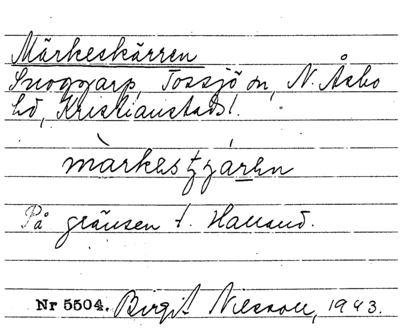 Märkeskärren
Snoggarp, Tossjö sn, N. Åsbo
hd, Kristianstads l.
màrkestzjáren
På gränsen t. Halland.
Nr 5504. Birgit Nilsson, 1943.